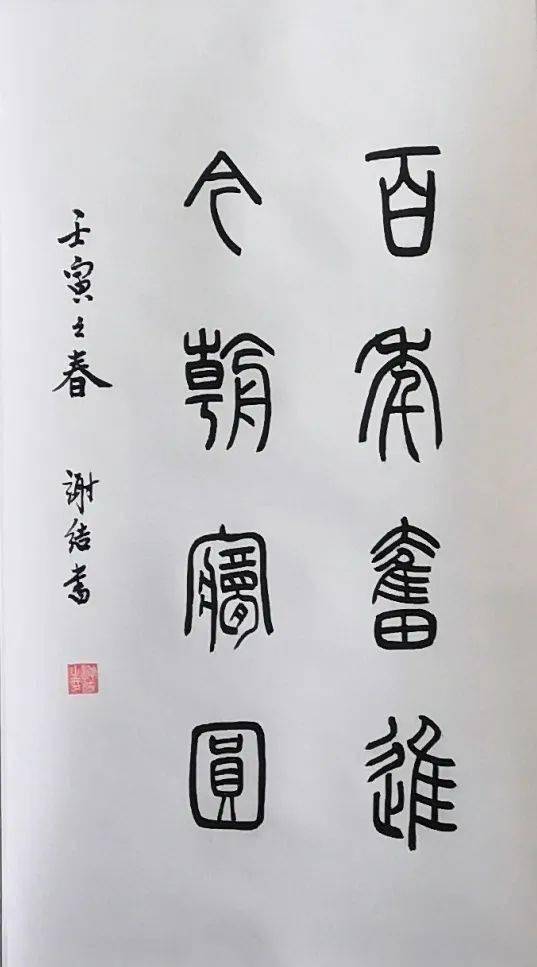 百年奮進
今朝夢圓
壬寅之春 谢结书